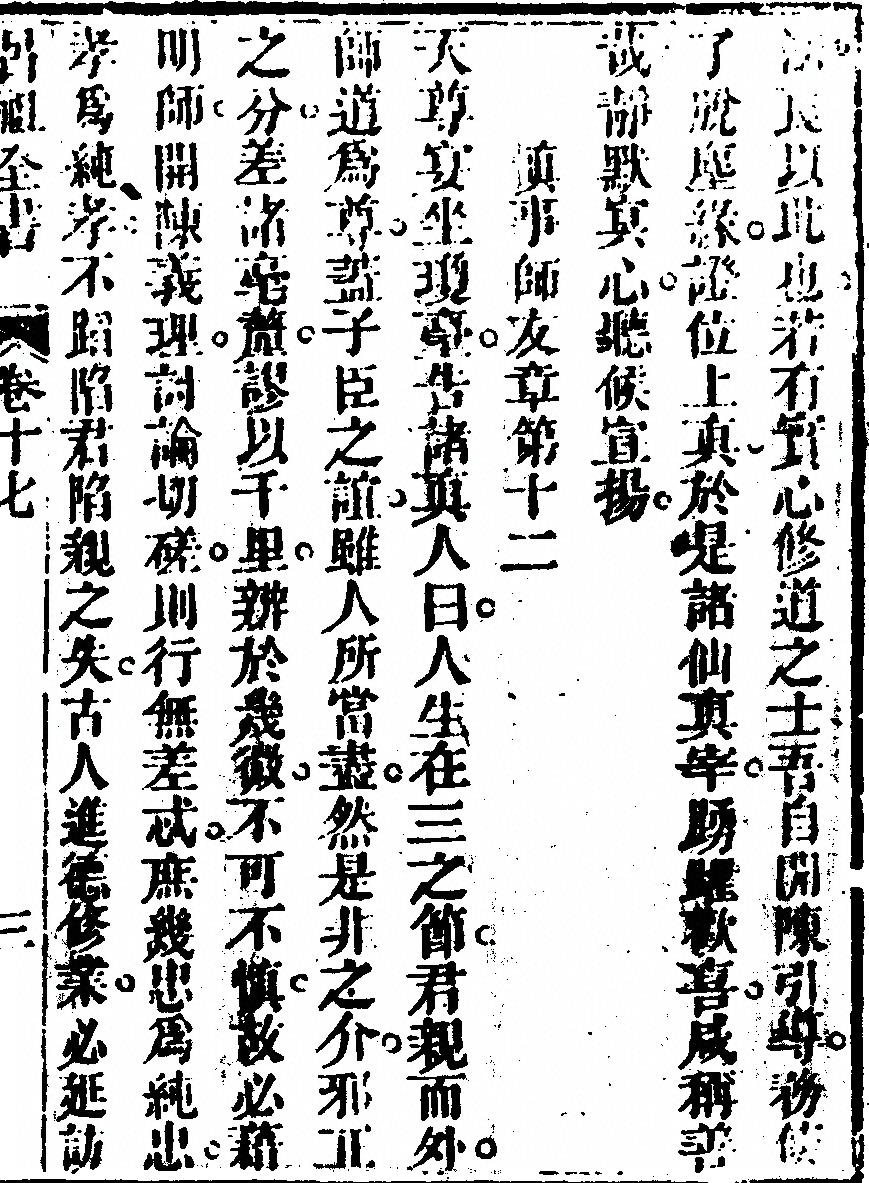 法良以此也若有實心修道之士吾自開陳引導務使
了脫塵緣證位上真於是諸仙真宰踴躍歡喜咸稱善
哉靜默冥心聽候宣揚
慎事師友章第十二
天尊安坐瓊臺告諸真人曰人生在三之節君親而外
師道爲尊葢子臣之誼雖人所當盡然是非之介邪正
之分差諸毫釐謬以千里辨於幾微不可不慎故必藉
明師開陳義理討論切磋則行無差忒庶幾忠爲純忠
孝爲純孝不蹈陷君陷親之失古人進德修業必延訪
全書 卷十七 三